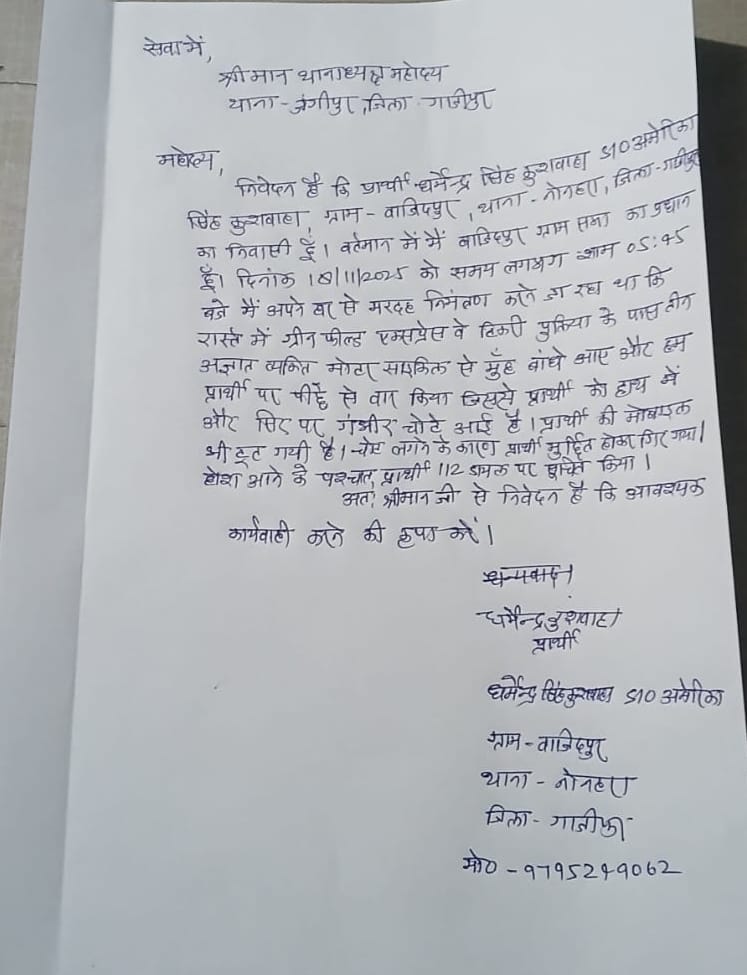 सेवा में,
श्रीमान थानाध्यक्ष महोदय
थाना - जंगीपुर, जिला - गाजीपुर
महोदय,
निवेदन है कि प्रार्थी धर्मेन्द्र सिंह कुशवाहा S/O अमेरिका
सिंह कुशवाहा, ग्राम - वाजिदपुर, थाना - नोनहरा, जिला - गाजीपुर
का निवासी हूँ। वर्तमान में मैं वाजिदपुर ग्राम सभा का प्रधान
हूँ। दिनांक 18/11/2025 को समय लगभग शाम 05:45
बजे मैं अपने घर से मरदह निमंत्रण करने जा रहा था कि
रास्ते में ग्रीन फील्ड एक्सप्रेस वे डिकरी पुलिया के पास तीन
अज्ञात व्यक्ति मोटर साइकिल से मुँह बांधे आए और हम
प्रार्थी पर से वार किया जिससे प्रार्थी को हाथ में
और सिर पर गंभीर चोटे आई है। प्रार्थी की मोबाइल
भी टूट गयी है। चोट लगने के कारण प्रार्थी मुर्छित होकर गिर गया।
होश आने के पश्चात प्रार्थी 112 डायल पर सूचित किया।
अतः श्रीमान जी से निवेदन है कि आवश्यक
कार्यवाही करने की कृपा करें।
धन्यवाद।
धर्मेन्द्र कुशवाहा
प्रार्थी
धर्मेन्द्र सिंह कुशवाहा S/O अमेरिका
ग्राम - वाजिदपुर
थाना - नोनहरा
जिला - गाजीपुर
मो० - 9795249062